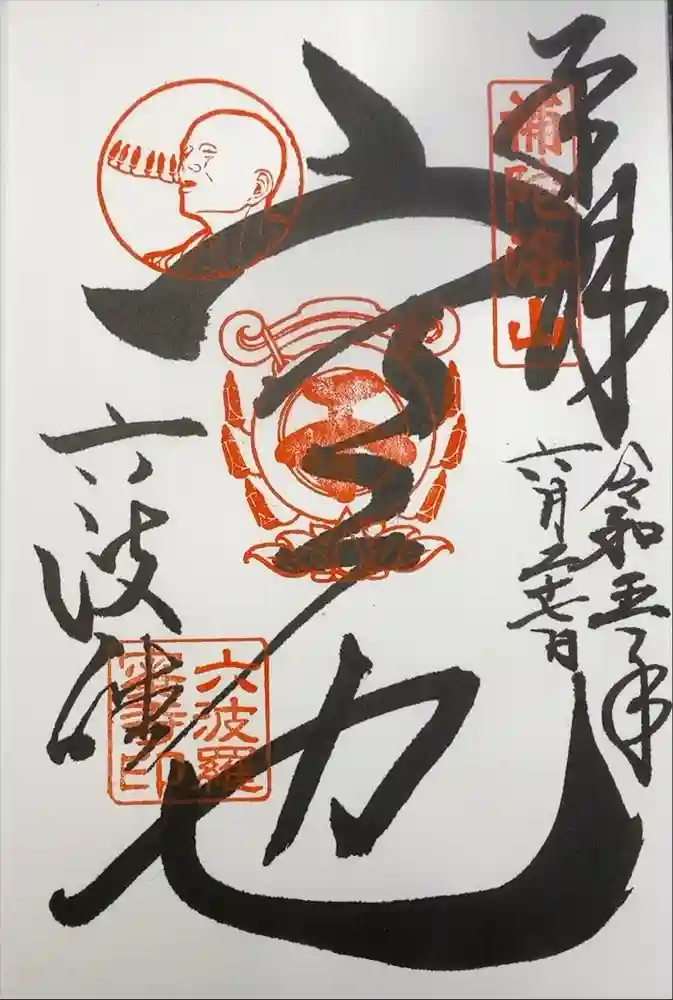 奉拝
補陀洛山
令和五年
六月二十七日
空也
六波羅蜜寺印
六波羅